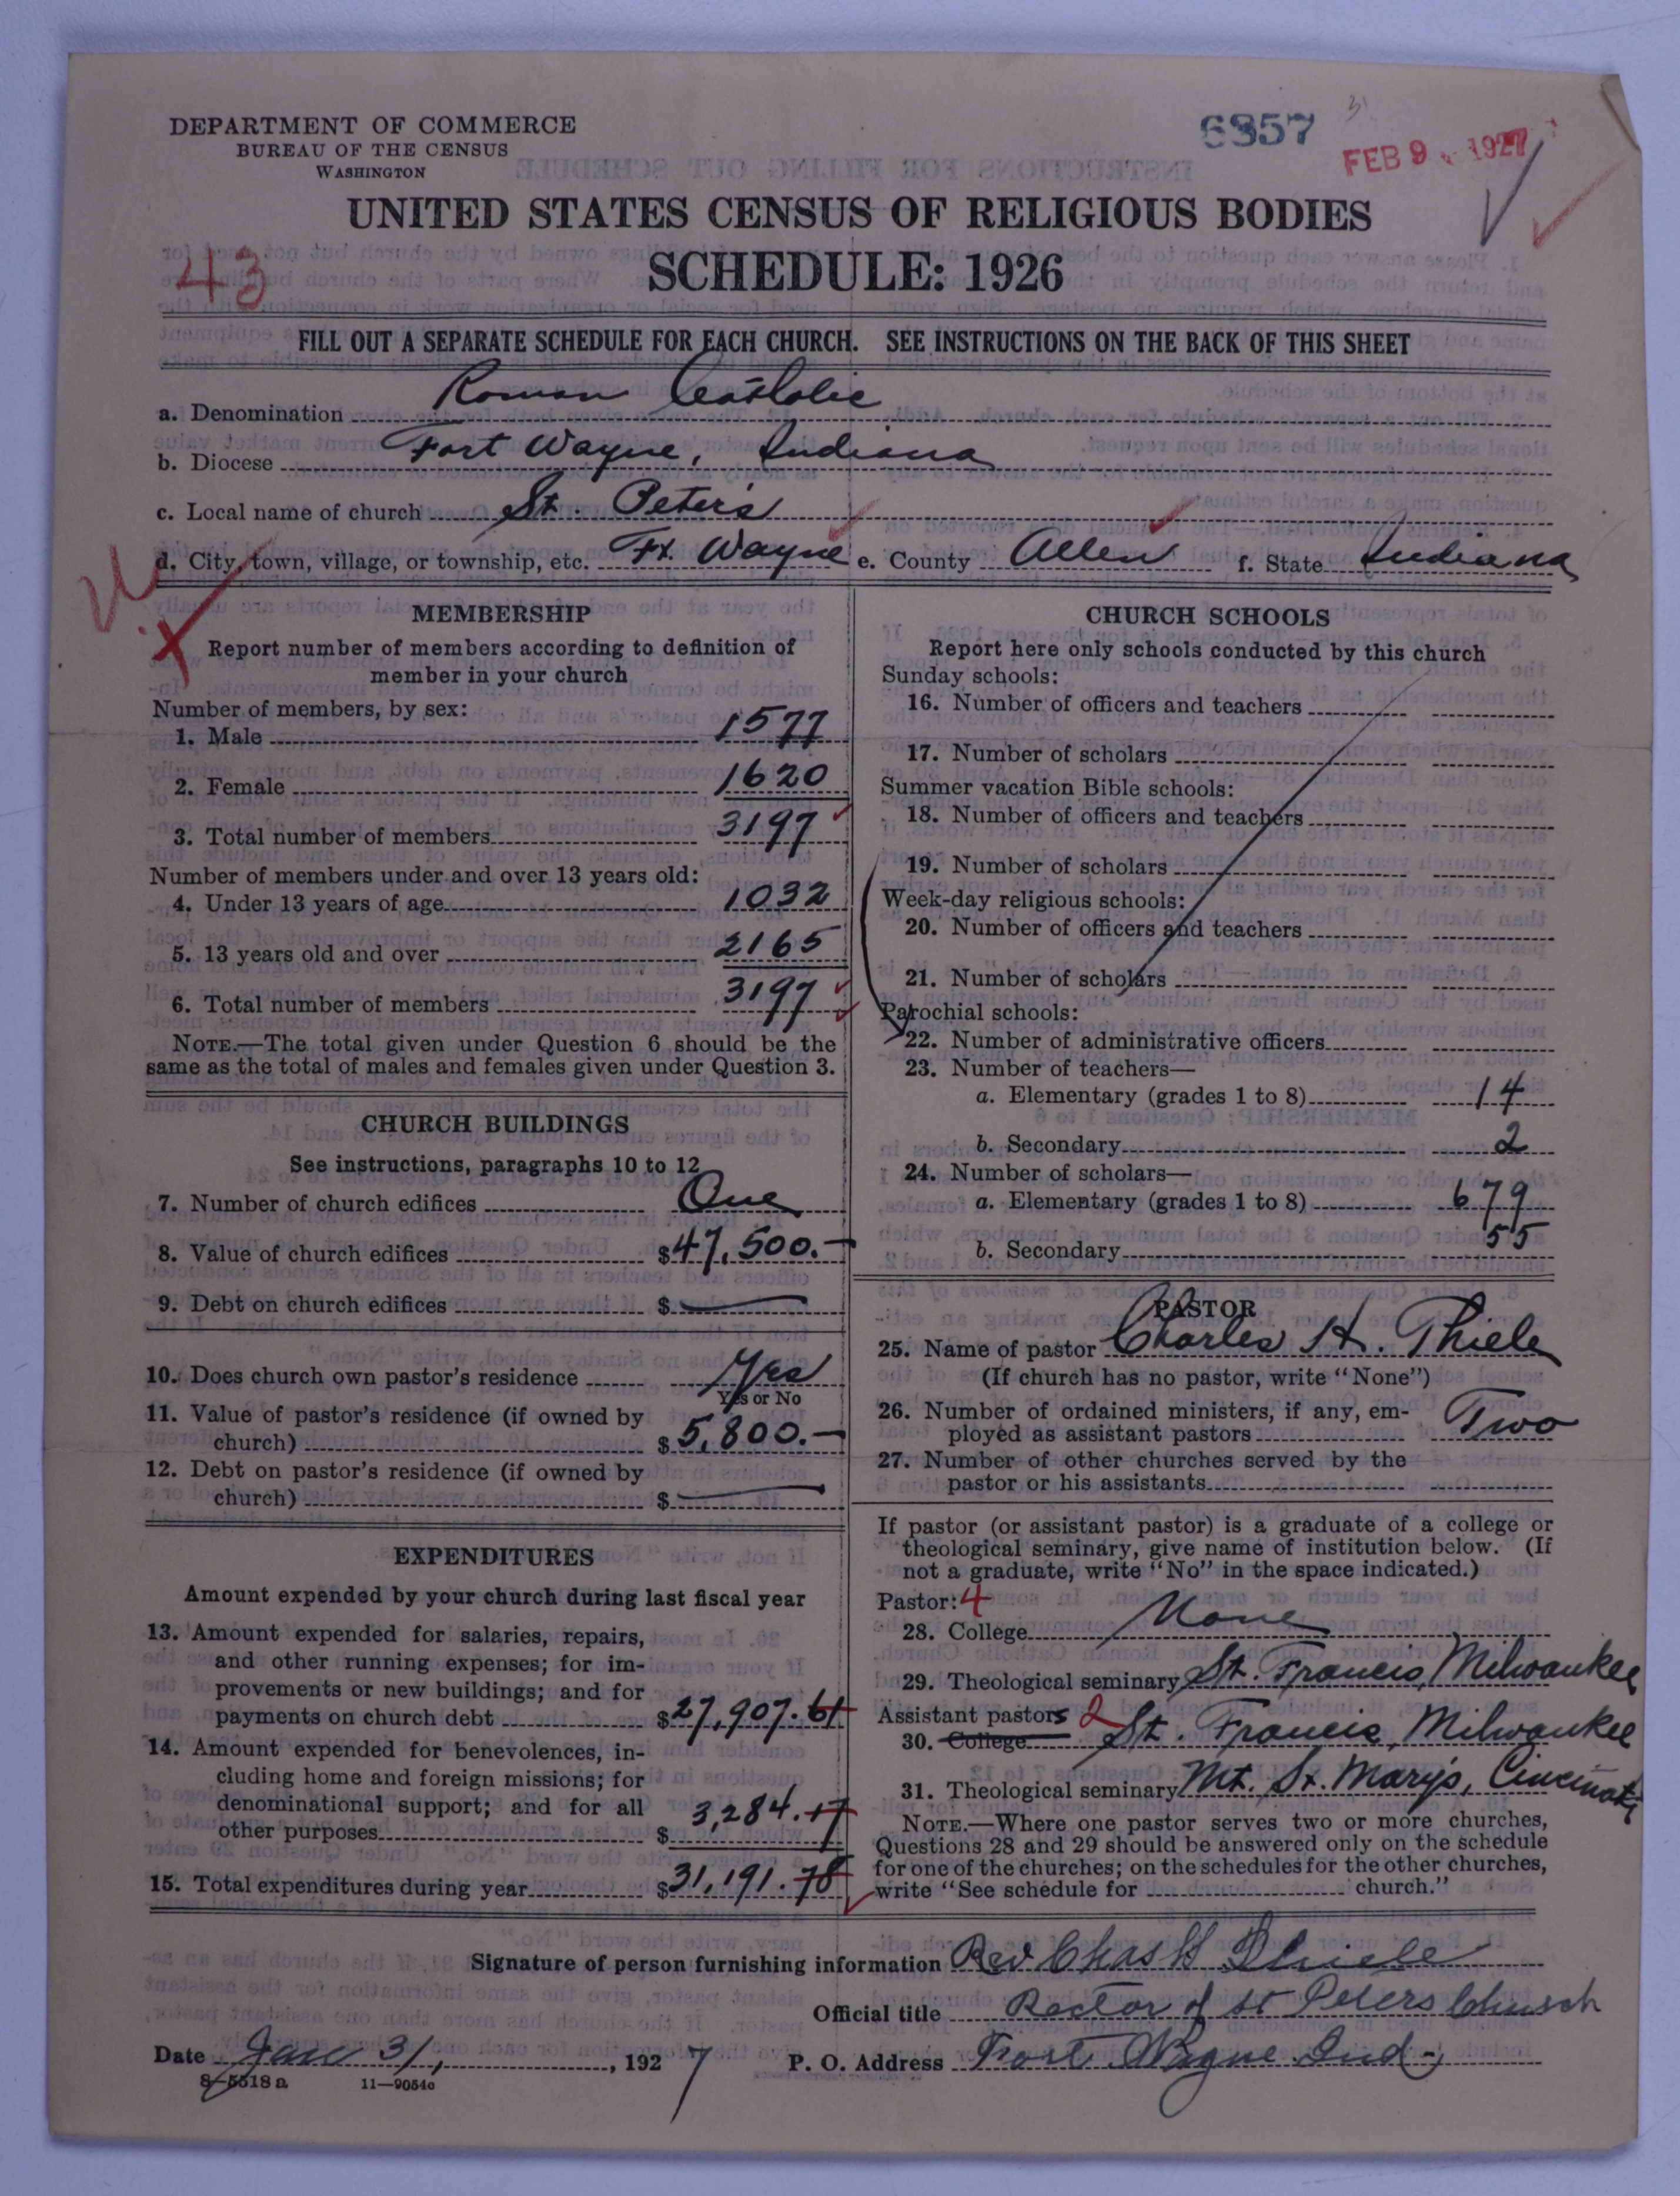 DEPARTMENT OF COMMERCE
BUREAU OF THE CENSUS
WASHINGTON
6357
FEB 9 1927
UNITED STATES CENSUS OF RELIGIOUS BODIES
43
SCHEDULE: 1926
FILL OUT A SEPARATE SCHEDULE FOR EACH CHURCH. SEE INSTRUCTIONS ON THE BACK OF THIS SHEET
a. Denomination Roman Catholic
b. Diocese Fort Wayne, Indiana
c. Local name of church St. Peter's
d. City, town, village, or township, etc. Ft. Wayne e. County Allen f. State Indiana
MEMBERSHIP
Report number of members according to definition of
member in your church
Number of members, by sex:
1. Male 1577
2. Female 1620
3. Total number of members 3197
Number of members under and over 13 years old:
4. Under 13 years of age 1032
5. 13 years old and over 2165
6. Total number of members 3197
NOTE.—The total given under Question 6 should be the
same as the total of males and females given under Question 3.
CHURCH BUILDINGS
See instructions, paragraphs 10 to 12
7. Number of church edifices One
8. Value of church edifices $47,500.—
9. Debt on church edifices $ —
10. Does church own pastor's residence Yes
Yes or No
11. Value of pastor's residence (if owned by
church) $5,800.—
12. Debt on pastor's residence (if owned by
church) $ —
EXPENDITURES
Amount expended by your church during last fiscal year
13. Amount expended for salaries, repairs,
and other running expenses; for im-
provements or new buildings; and for
payments on church debt $27,907.61
14. Amount expended for benevolences, in-
cluding home and foreign missions; for
denominational support; and for all
other purposes $3,284.17
15. Total expenditures during year $31,191.78
CHURCH SCHOOLS
Report here only schools conducted by this church
Sunday schools:
16. Number of officers and teachers
17. Number of scholars
Summer vacation Bible schools:
18. Number of officers and teachers
19. Number of scholars
Week-day religious schools:
20. Number of officers and teachers
21. Number of scholars
Parochial schools:
22. Number of administrative officers
23. Number of teachers—
a. Elementary (grades 1 to 8) 14
b. Secondary 2
24. Number of scholars—
a. Elementary (grades 1 to 8) 679
b. Secondary 55
PASTOR
25. Name of pastor Charles H. Thiele
(If church has no pastor, write "None")
26. Number of ordained ministers, if any, em-
ployed as assistant pastors Two
27. Number of other churches served by the
pastor or his assistants
If pastor (or assistant pastor) is a graduate of a college or
theological seminary, give name of institution below. (If
not a graduate, write "No" in the space indicated.)
Pastor: 4
28. College None
29. Theological seminary St. Francis, Milwaukee
Assistant pastors 2
30. College St. Francis, Milwaukee
31. Theological seminary Mt. St. Mary's, Cincinnati
NOTE.—Where one pastor serves two or more churches,
Questions 28 and 29 should be answered only on the schedule
for one of the churches; on the schedules for the other churches,
write "See schedule for church."
Signature of person furnishing information Rev Chas H Thiele
Official title Rector of St Peters Church
Date Jan 31, 1927 P. O. Address Fort Wayne Ind -
8-5518a 11—9054c